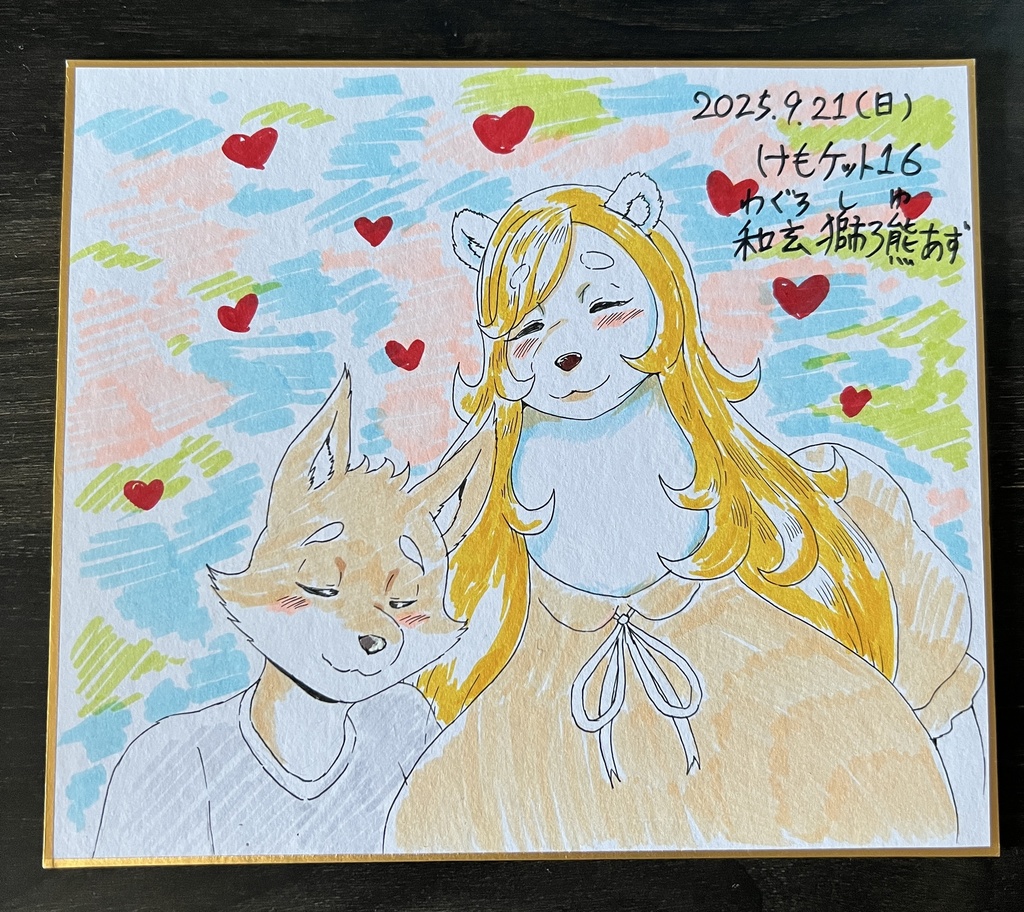 2025.9.21(日)
けもケット16
わぐろ し ゆ
和玄 獅子熊あず